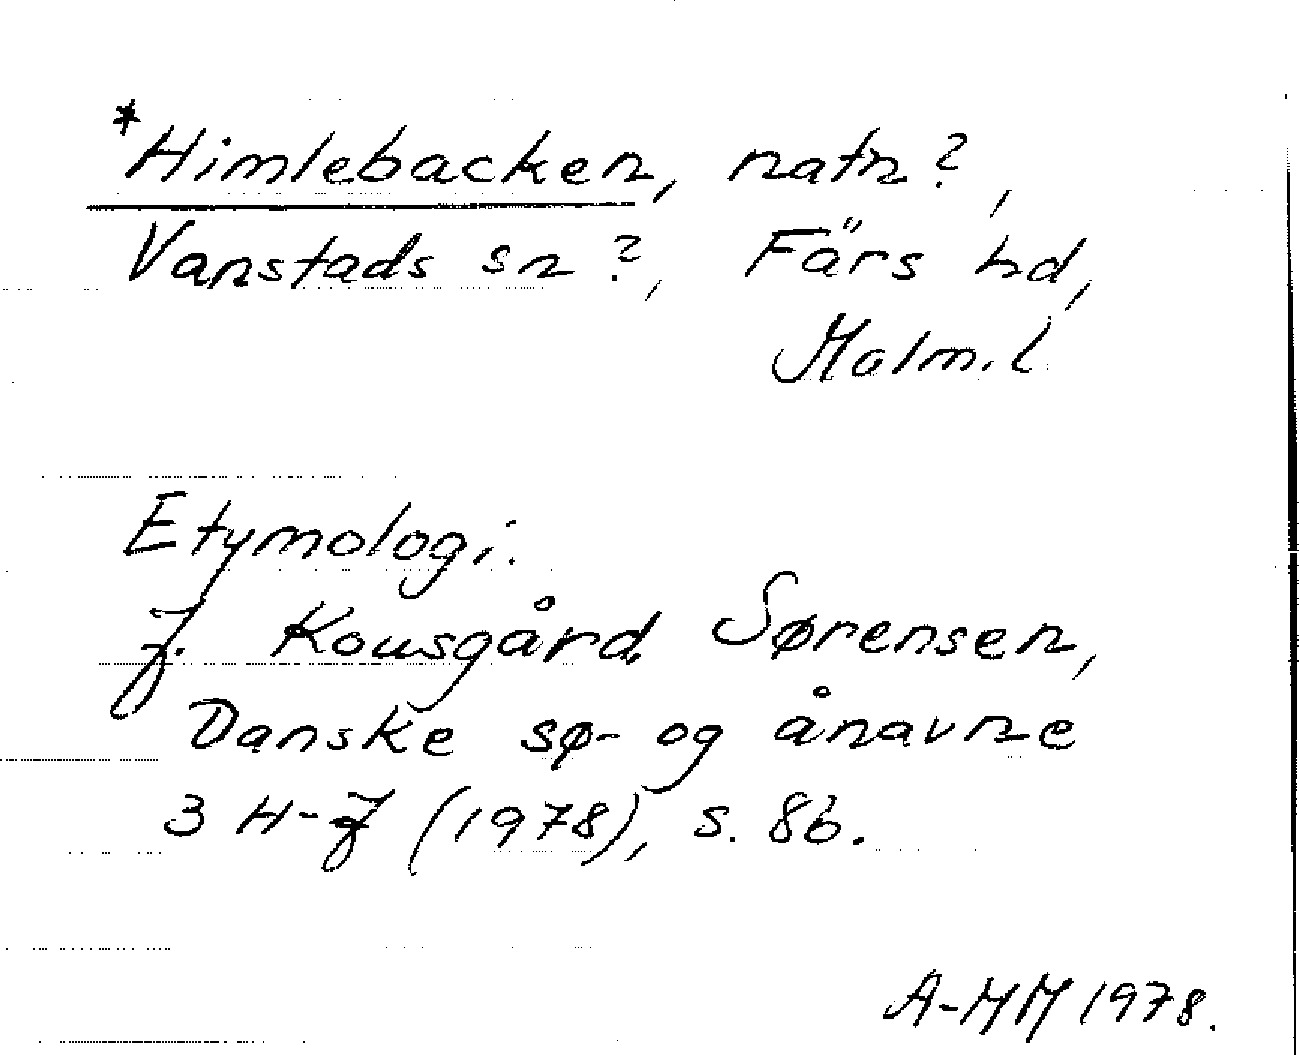 *Himlebacken, natn?,
Vanstads sn?, Färs hd,
Malm.l
Etymologi.
J. Kousgård Sørensen,
Danske sø- og ånavne
3 H-J (1978), s. 86.
A-MM 1978.